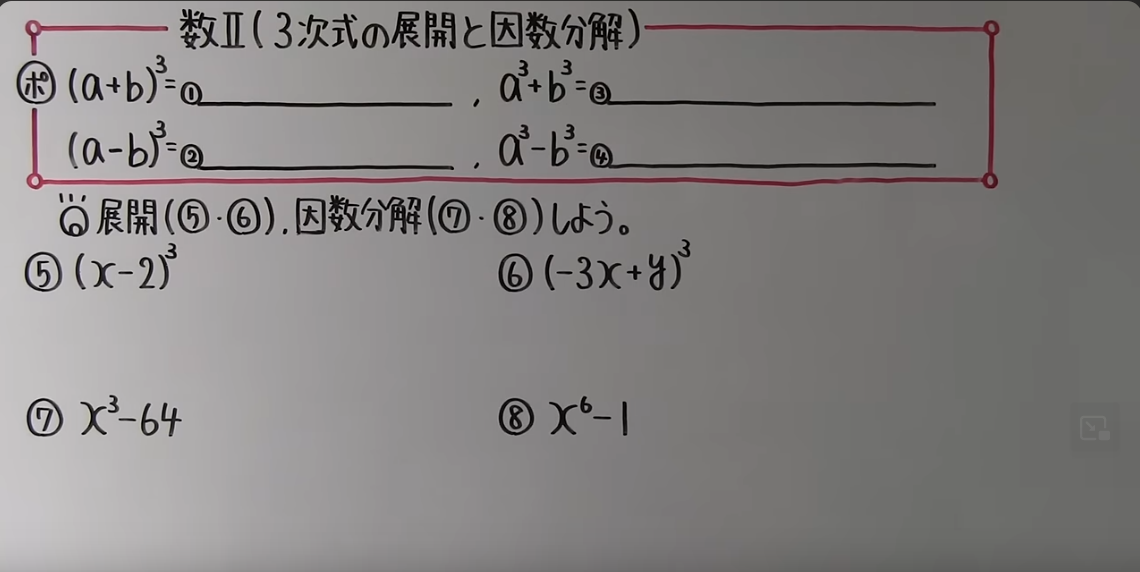 数Ⅱ(3次式の展開と因数分解)
ポ (a+b)³=①__________, a³+b³=③__________
(a-b)³=②__________, a³-b³=④__________
展開(⑤・⑥),因数分解(⑦・⑧)しよう。
⑤ (x-2)³ ⑥ (-3x+y)³
⑦ x³-64 ⑧ x⁶-1